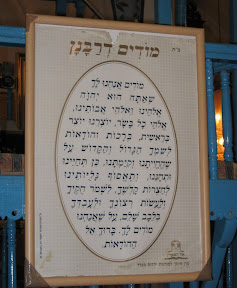 ב"ה
מוֹדִים דְּרַבָּנָן
מוֹדִים אֲנַחְנוּ לָךְ
שָׁאַתָּה הוּא יְהֹוָה
אֱלֹהֵינוּ וֵאלֹהֵי אֲבוֹתֵינוּ,
אֱלֹהֵי כָל בָּשָׂר, יוֹצְרֵנוּ יוֹצֵר
בְּרֵאשִׁית, בְּרָכוֹת וְהוֹדָאוֹת
לְשִׁמְךָ הַגָּדוֹל וְהַקָּדוֹשׁ עַל
שֶׁהֶחֱיִיתָנוּ וְקִיַּמְתָּנוּ, כֵּן תְּחַיֵּינוּ
וּתְחָנֵּנוּ, וְתֶאֱסוֹף גָּלֻיּוֹתֵינוּ
לְחַצְרוֹת קָדְשֶׁךָ, לִשְׁמֹר חֻקֶּיךָ
וְלַעֲשׂוֹת רְצוֹנְךָ וּלְעָבְדְּךָ
בְּלֵבָב שָׁלֵם, עַל שֶׁאֲנַחְנוּ
מוֹדִים לָךְ, בָּרוּךְ אֵל
הַהוֹדָאוֹת.